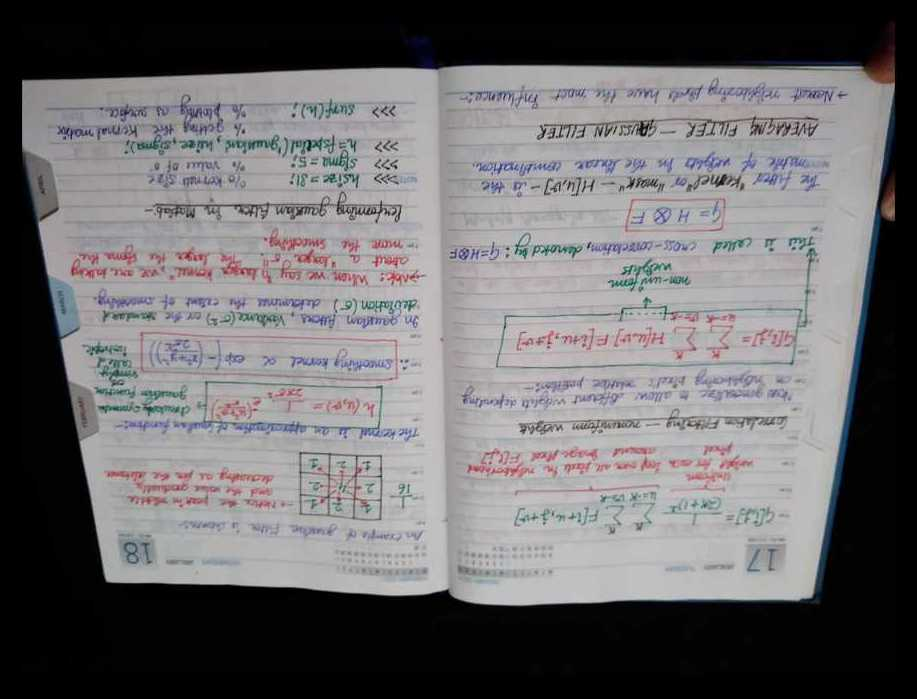 17
JANUARY
TUESDAY
G[i,j] = 1/(2K+1)² Σ(u=-K to K) Σ(v=-K to K) F[i+u, j+v]
uniform weight for each pixel
loop over all pixels in neighborhood around image pixel F[i,j]
Correlation Filtering — nonuniform weights
Now generalize to allow different weights depending
on neighboring pixel's relative position:-
G[i,j] = Σ(u=-K to K) Σ(v=-K to K) H[u,v] F[i+u, j+v]
non-uniform
weights
This is called cross-correlation, denoted by: G=H⊗F
G = H ⊗ F
The filter "kernel" or "mask" — H[u,v] — is the
matrix of weights in the linear combination.
AVERAGING FILTER — GAUSSIAN FILTER
→ Nearest neighboring pixels have the most influence:-
18
JANUARY
An example of gaussian Filter is shown:-
1/16
1 2 1
2 4 2
1 2 1
→ Notice the peak in middle
and the value gradually
decreasing as per the distance
The kernel is an approximation of Gaussian function:-
h(u,v) = 1/2πσ² e^-(u²+v²/σ²)
→ circularly symmetric
gaussian function
or
simply
called
isotropic
∴ Smoothing kernel α exp(-(x²+y²/2σ²))
In gaussian filters, Variance (σ²) or the standard
deviation (σ) determines the extent of smoothing.
→ Note: When we say "larger kernel", we are talking
about a "larger σ". The larger the sigma the
more the smoothing.
Performing gaussian filter in Matlab-
>>> hsize = 31; % kernel size
>>> sigma = 5; % value of σ
>>> h = fspecial('gaussian', hsize, sigma);
% getting the kernel matrix
>>> surf(h); % plotting as surface.
FEBRUARY
MARCH
APRIL